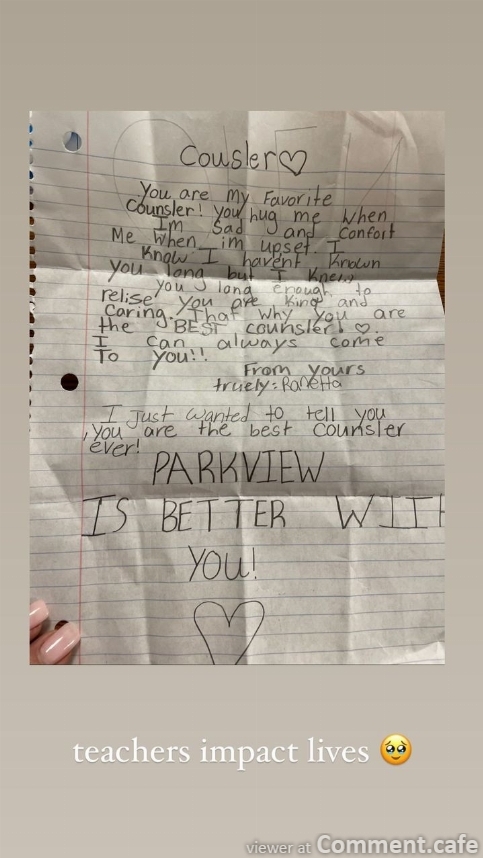 Cousler♡
You are my Favorite
Counsler! you hug me when
Im Sad and Confort
Me when im upset. I
Know I havent Known
you long but I Knew
you long enough to
relise you are kind and
caring. That why you are
the BEST counsler! ♡.
I can always come
To you!!
From yours
truely:
I just wanted to tell you
,you are the best counsler
ever!
PARKVIEW
IS BETTER WITH
YOU!
teachers impact lives 🥹
viewer at Comment.cafe